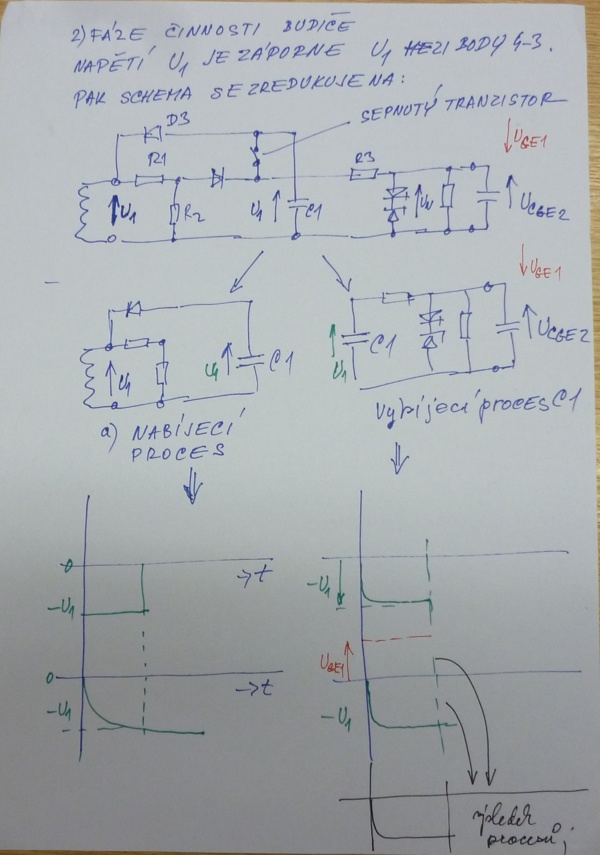 2) FÁZE ČINNOSTI BUDIČE
NAPĚTÍ U1 JE ZÁPORNÉ U1 MEZI BODY 4-3.
PAK SCHEMA SE ZREDUKUJE NA:
SEPNUTÝ TRANZISTOR
D3
R1
R3
UGE1
U1
R2
U1
C1
UCGE2
UGE1
U1
U1
C1
U1
C1
UCGE2
a) NABÍJECÍ
PROCES
Vybíjecí proces C1
0
→t
-U1
-U1
UGE1
0
→t
-U1
-U1
výsledek
procesů